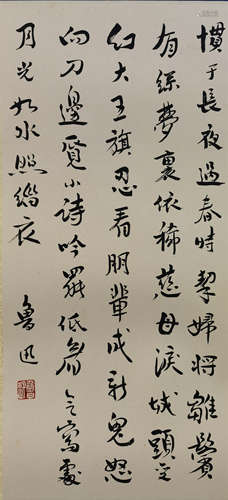 慣于長夜過春時挈婦將雛鬢
有絲夢裏依稀慈母淚城頭变
幻大王旗忍看朋輩成新鬼怒
向刀邊覓小詩吟罷低眉无寫處
月光如水照緇衣
魯迅